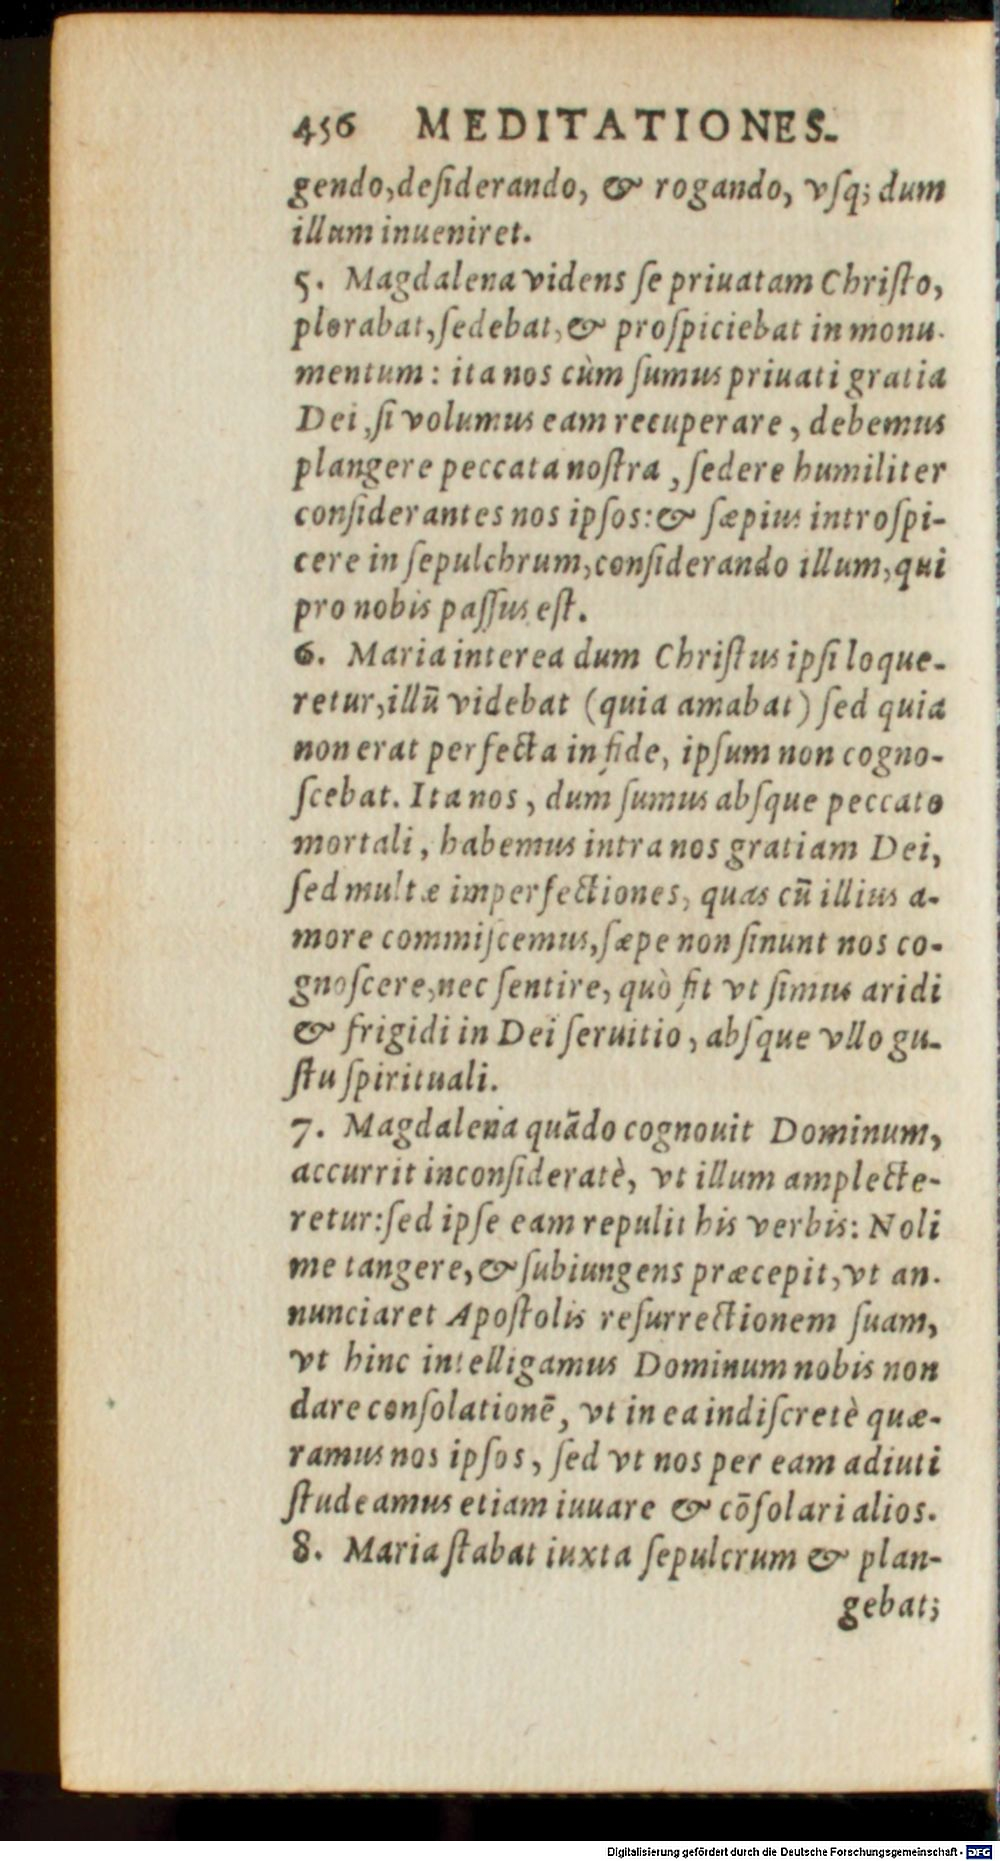 456 MEDITATIONES.
gendo, deſiderando, & rogando, vſq; dum
illum inueniret.
5. Magdalena videns ſe priuatam Chriſto,
plorabat, ſedebat, & proſpiciebat in monu-
mentum: ita nos cùm ſumus priuati gratia
Dei, ſi volumus eam recuperare, debemus
plangere peccata noſtra, ſedere humiliter
conſiderantes nos ipſos: & ſæpius introſpi-
cere in ſepulchrum, conſiderando illum, qui
pro nobis paſſus eſt.
6. Maria interea dum Chriſtus ipſi loque-
retur, illū videbat (quia amabat) ſed quia
non erat perfecta in fide, ipſum non cogno-
ſcebat. Ita nos, dum ſumus abſque peccato
mortali, habemus intra nos gratiam Dei,
ſed multæ imperfectiones, quas cū illius a-
more commiſcemus, ſæpe non ſinunt nos co-
gnoſcere, nec ſentire, quò fit vt ſimus aridi
& frigidi in Dei ſeruitio, abſque vllo gu-
ſtu ſpirituali.
7. Magdalena quādo cognouit Dominum,
accurrit inconſideratè, vt illum amplecte-
retur: ſed ipſe eam repulit his verbis: Noli
me tangere, & ſubiungens præcepit, vt an-
nunciaret Apoſtolis reſurrectionem ſuam,
vt hinc intelligamus Dominum nobis non
dare conſolationē, vt in ea indiſcretè quæ-
ramus nos ipſos, ſed vt nos per eam adiuti
ſtudeamus etiam iuuare & cōſolari alios.
8. Maria ſtabat iuxta ſepulcrum & plan-
gebat;
Digitalisierung gefördert durch die Deutsche Forschungsgemeinschaft - DFG